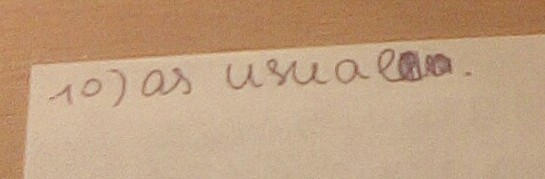 10) as usual.